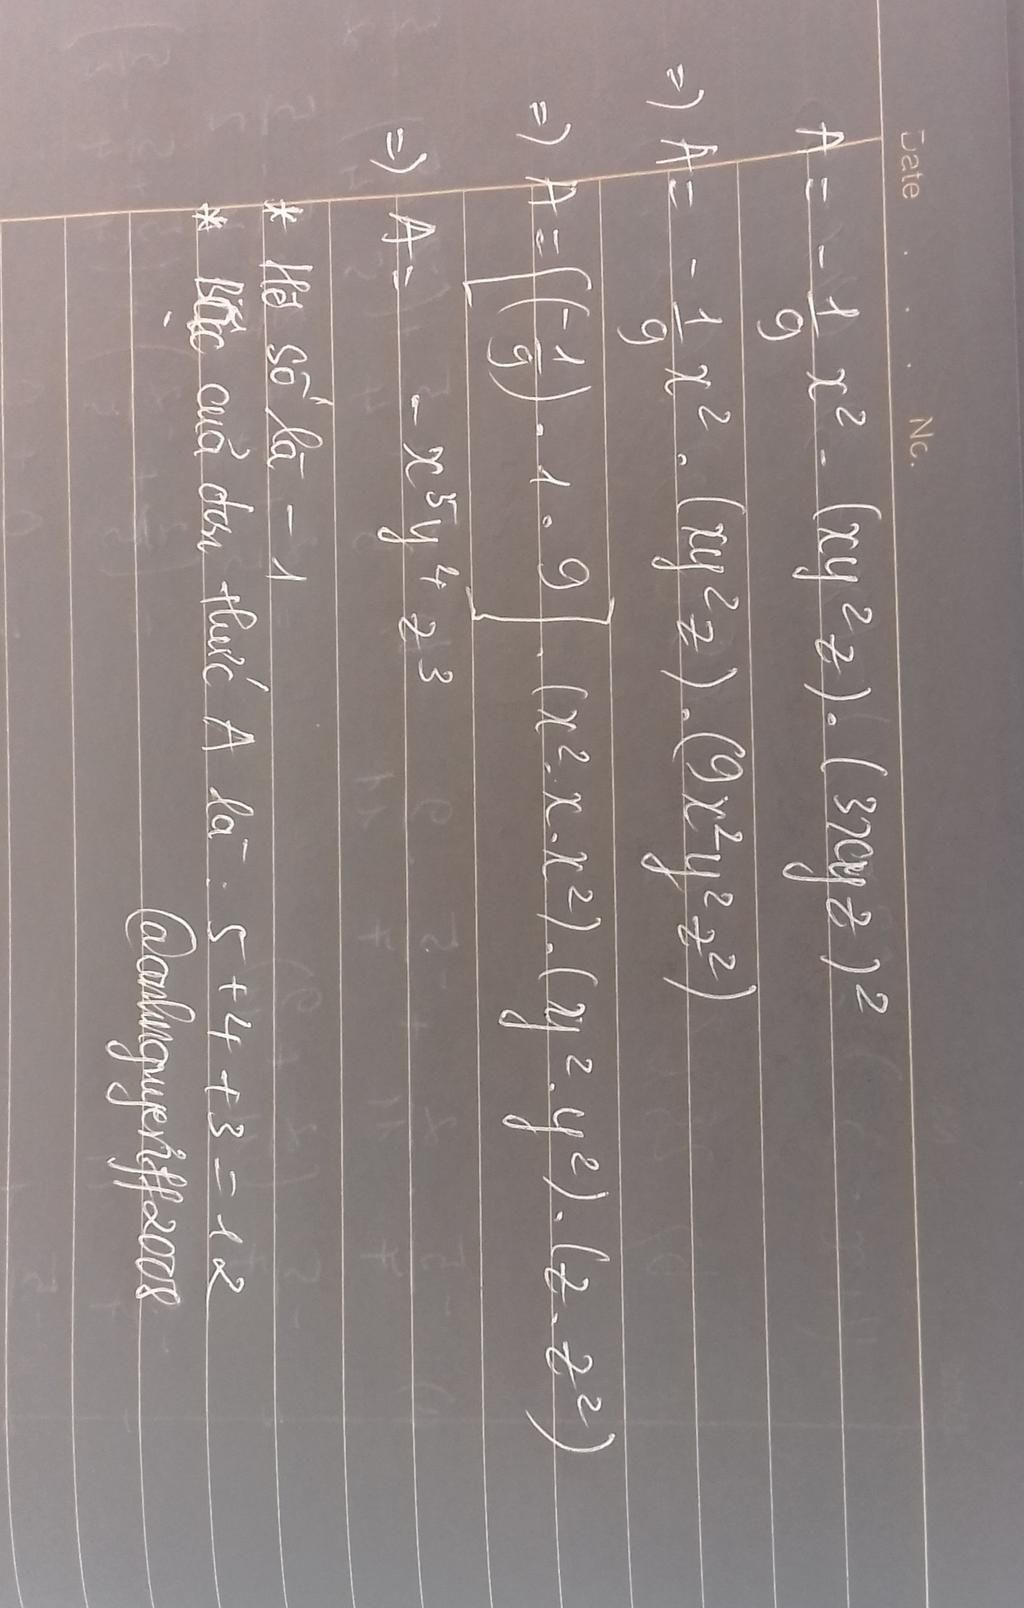 Date . . . No.
A = - 1/9 x² . (xy²z) . (3xyz)²
=) A = - 1/9 x² . (xy²z) . (9x²y²z²)
=) A = [(-1/9) . 1 . 9] . (x² . x . x²) . (y² . y²) . (z . z²)
=) A = - x⁵y⁴z³
* Hệ số là - 1
* Bậc của đơn thức A là : 5 + 4 + 3 = 12